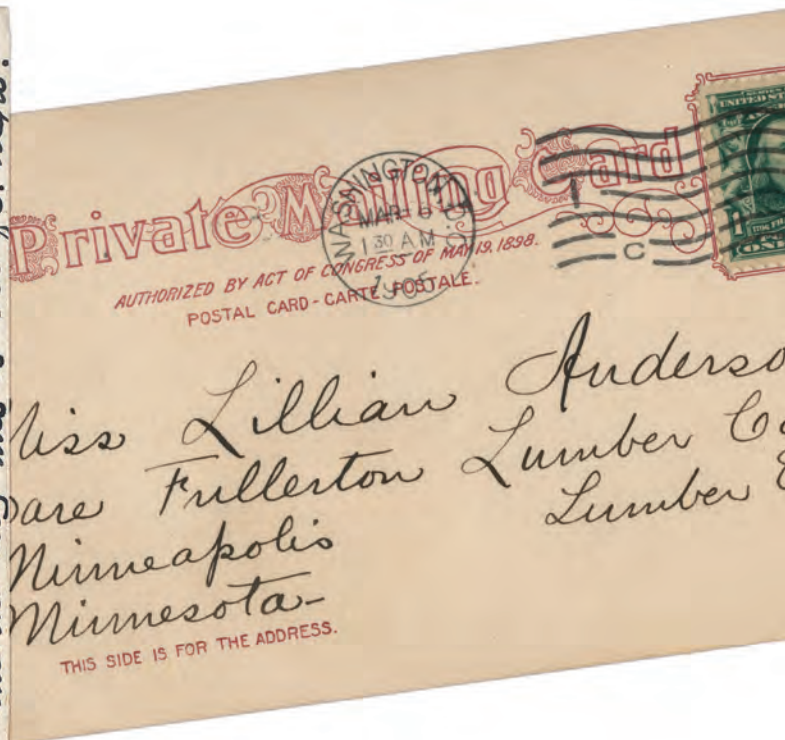 Private Mailing Card
AUTHORIZED BY ACT OF CONGRESS OF MAY 19. 1898.
POSTAL CARD - CARTE POSTALE.
WASHINGTON, D.C.
MAR 6
1 30 AM
1905
C
UNITED ST
1
ONE
Miss Lillian Anderso
Care Fullerton Lumber Co
Lumber
Minneapolis
Minnesota-
THIS SIDE IS FOR THE ADDRESS.